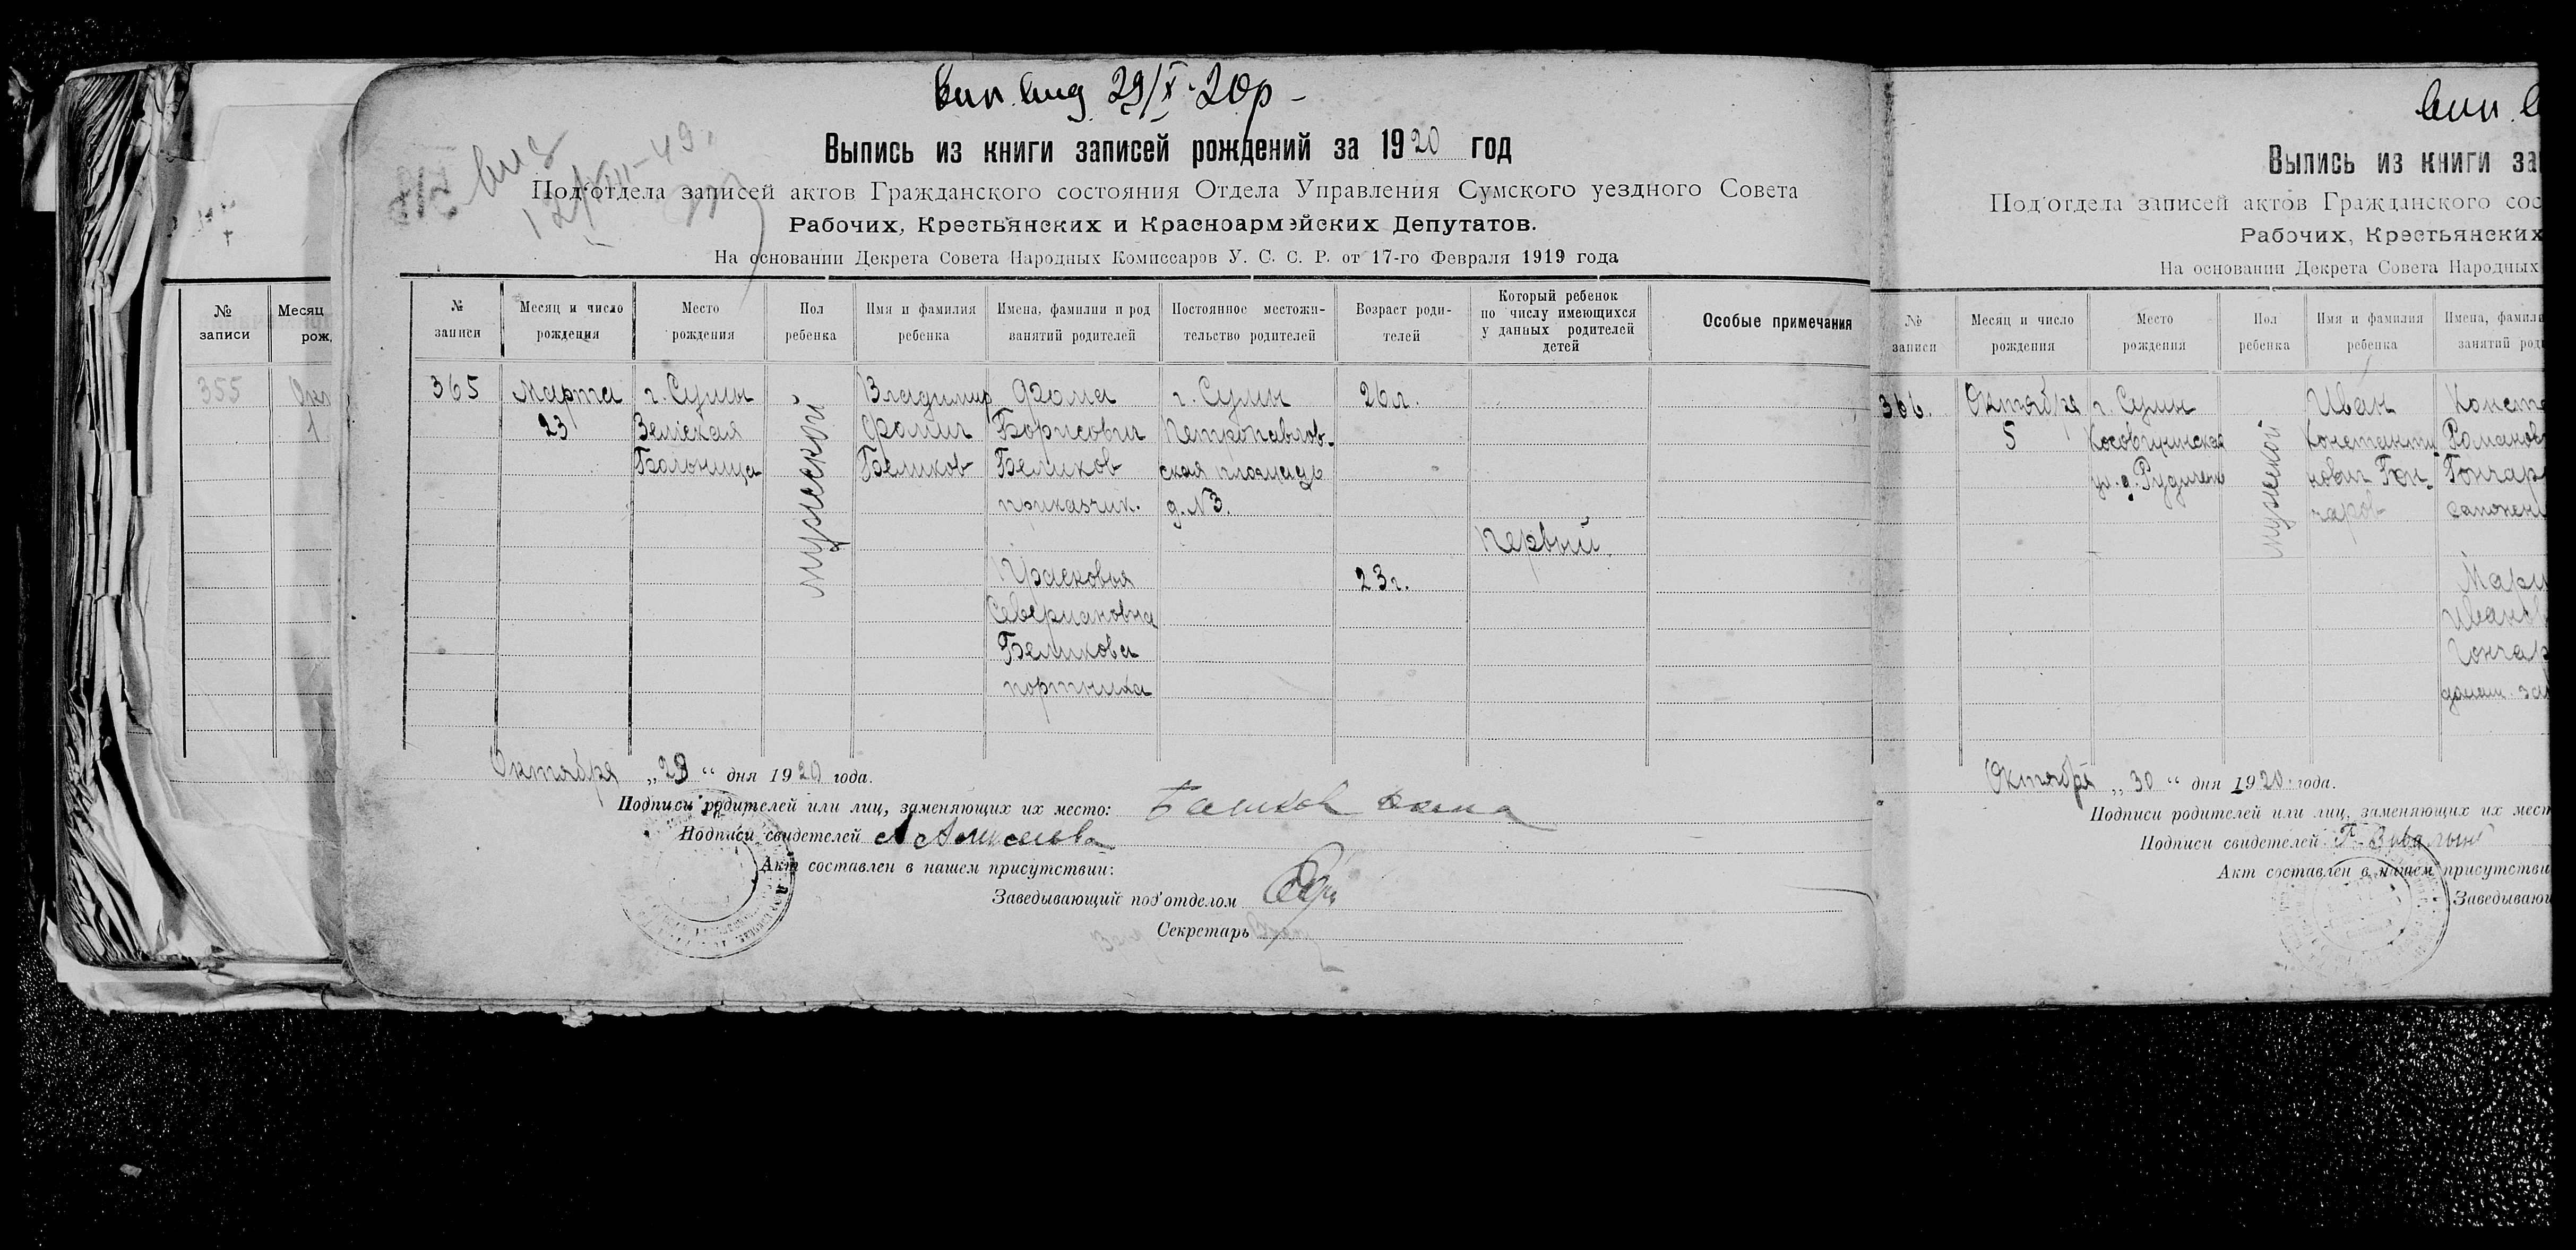 вип. вид 29/X 20р -
Выпись из книги записей рождений за 1920 год
Под'отдела записей актов Гражданского состояния Отдела Управления Сумского уездного Совета
Рабочих, Крестьянских и Красноармэйских Депутатов.
На основании Декрета Совета Народных Комиссаров У. С. С. Р. от 17-го Февраля 1919 года
№ записи
Месяц и число рождения
Место рождения
Пол ребенка
Имя и фамилия ребенка
Имена, фамилии и род занятий родителей
Постоянное местожительство родителей
Возраст родителей
Который ребенок по числу имеющихся у данных родителей детей
Особые примечания
365
Марта
23
г. Сумы
Земская
Больница
мужеской
Владимир
Фомич
Беликов
Фома
Борисович
Беликов
приказчик.
Прасковья
Севериановна
Беликова
портниха
г. Сумы
Петропавлов-
ская площадь
д. №3.
26 л.
23 г.
первый.
Октября „29“ дня 1920 года.
Подписи родителей или лиц, заменяющих их место:
Подписи свидетелей
Акт составлен в нашем присутствии:
Заведывающий под'отделом
Секретарь
№ записи
Месяц
рож
355
Окт
1
вип. в
Выпись из книги за
Под'отдела записей актов Гражданского сос
Рабочих, Крестьянских
На основании Декрета Совета Народных
№ записи
Месяц и число рождения
Место рождения
Пол ребенка
Имя и фамилия ребенка
Имена, фамили
занятий род
366.
Октября
5
г. Сумы
мужеской
Иван
Константи
нович Гон-
чаров
Конста
Романов
Гончар
сапожен
Мари
Иванов
Гончар
домаш. за
Октября „30“ дня 1920 года.
Подписи родителей или лиц, заменяющих их мест
Подписи свидетелей
Акт составлен в нашем присутстви
Заведывающ